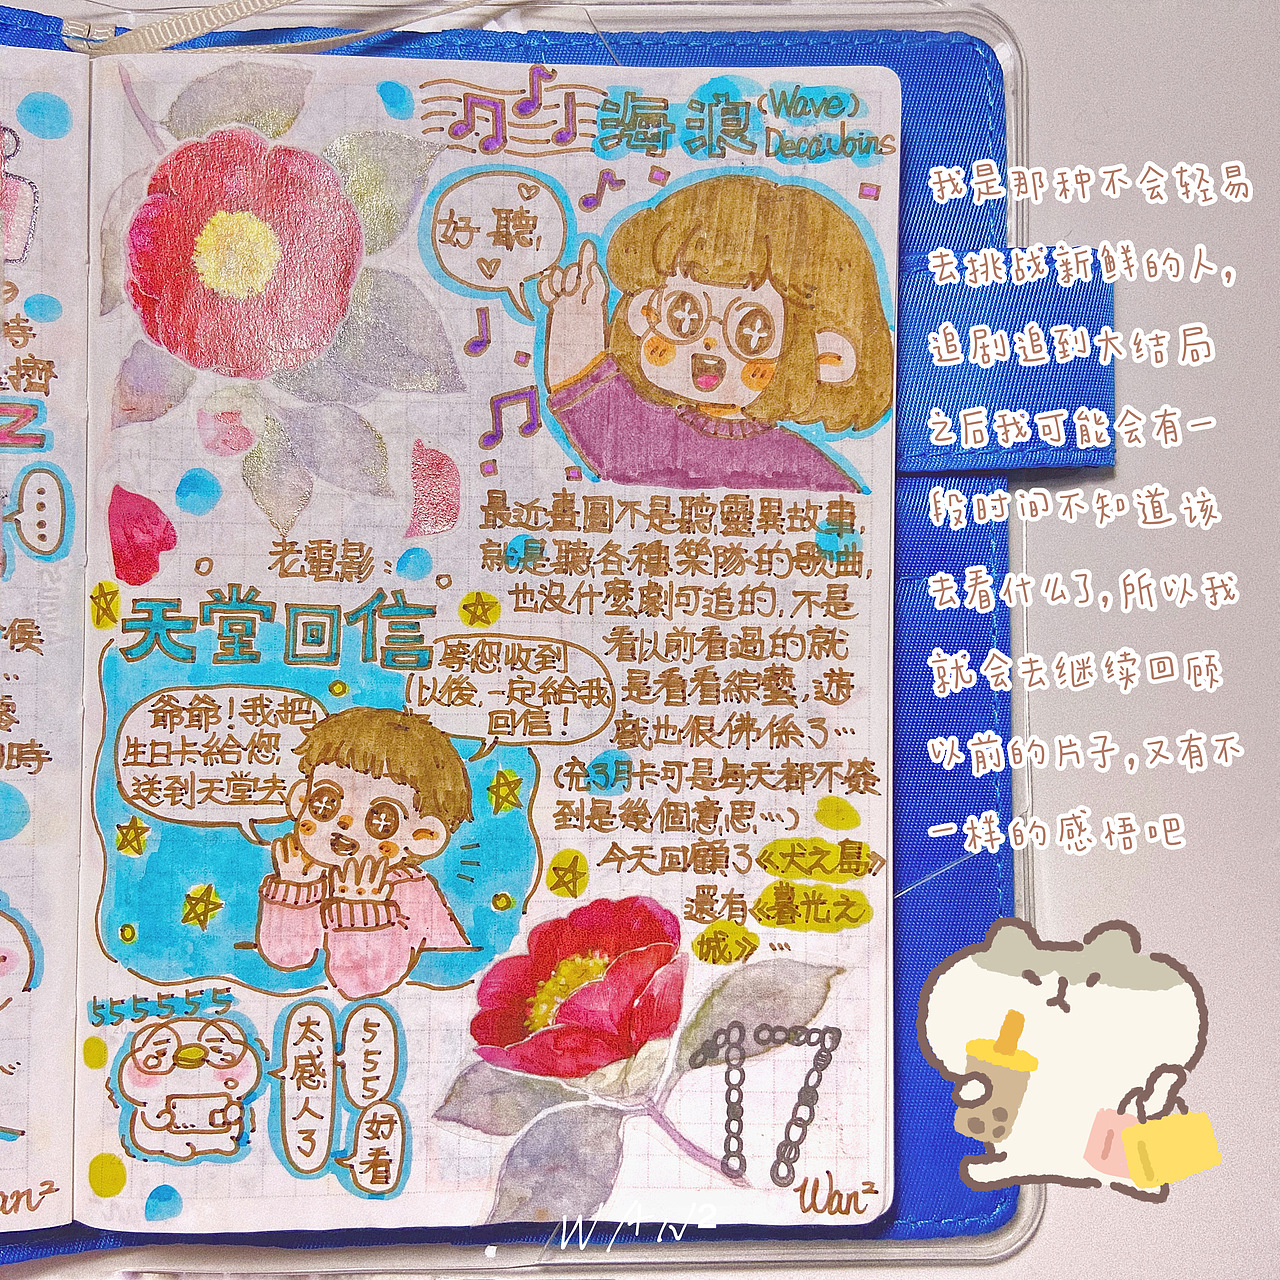 海浪 (Wave)
Deca Joins
好聽!
最近畫圖不是聽靈異故事,
就是聽各種樂隊的歌曲,
也沒什麼劇可追的,不是
看以前看過的就
是看看綜藝,遊
戲也很佛係了…
(充3月卡可是每天都不簽
到是幾個意思…)
今天回顧了《犬之島》
還有《暮光之
城》…
老電影:
天堂回信
等您收到
以後,一定給我
回信!
爺爺!我把
生日卡給您
送到天堂去
555555
太感人了
555
好看
17
Wan²
WAN²
我是那种不会轻易
去挑战新鲜的人,
追剧追到大结局
之后我可能会有一
段时间不知道该
去看什么了,所以我
就会去继续回顾
以前的片子,又有不
一样的感悟吧
時
擠
Z
...
候
時
an²